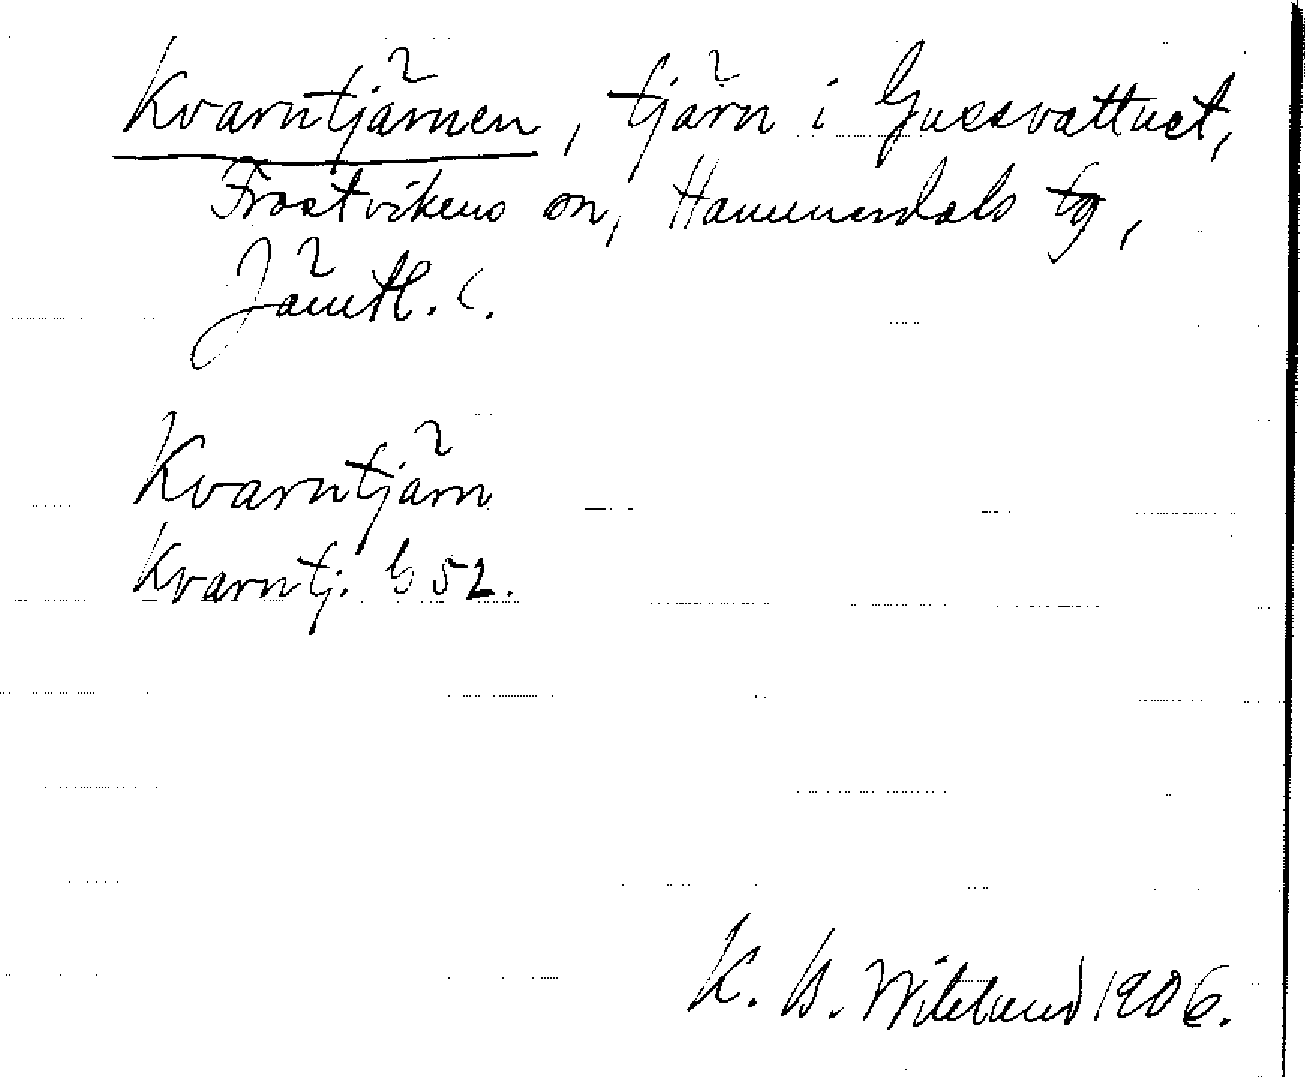 Kvarntjärnen, tjärn i Gussvattnet,
Frostvikens sn, Hammerdals tg,
Jämtl. l.
Kvarntjärn
Kvarntj. G 52.
K. B. Wiklund 1906.